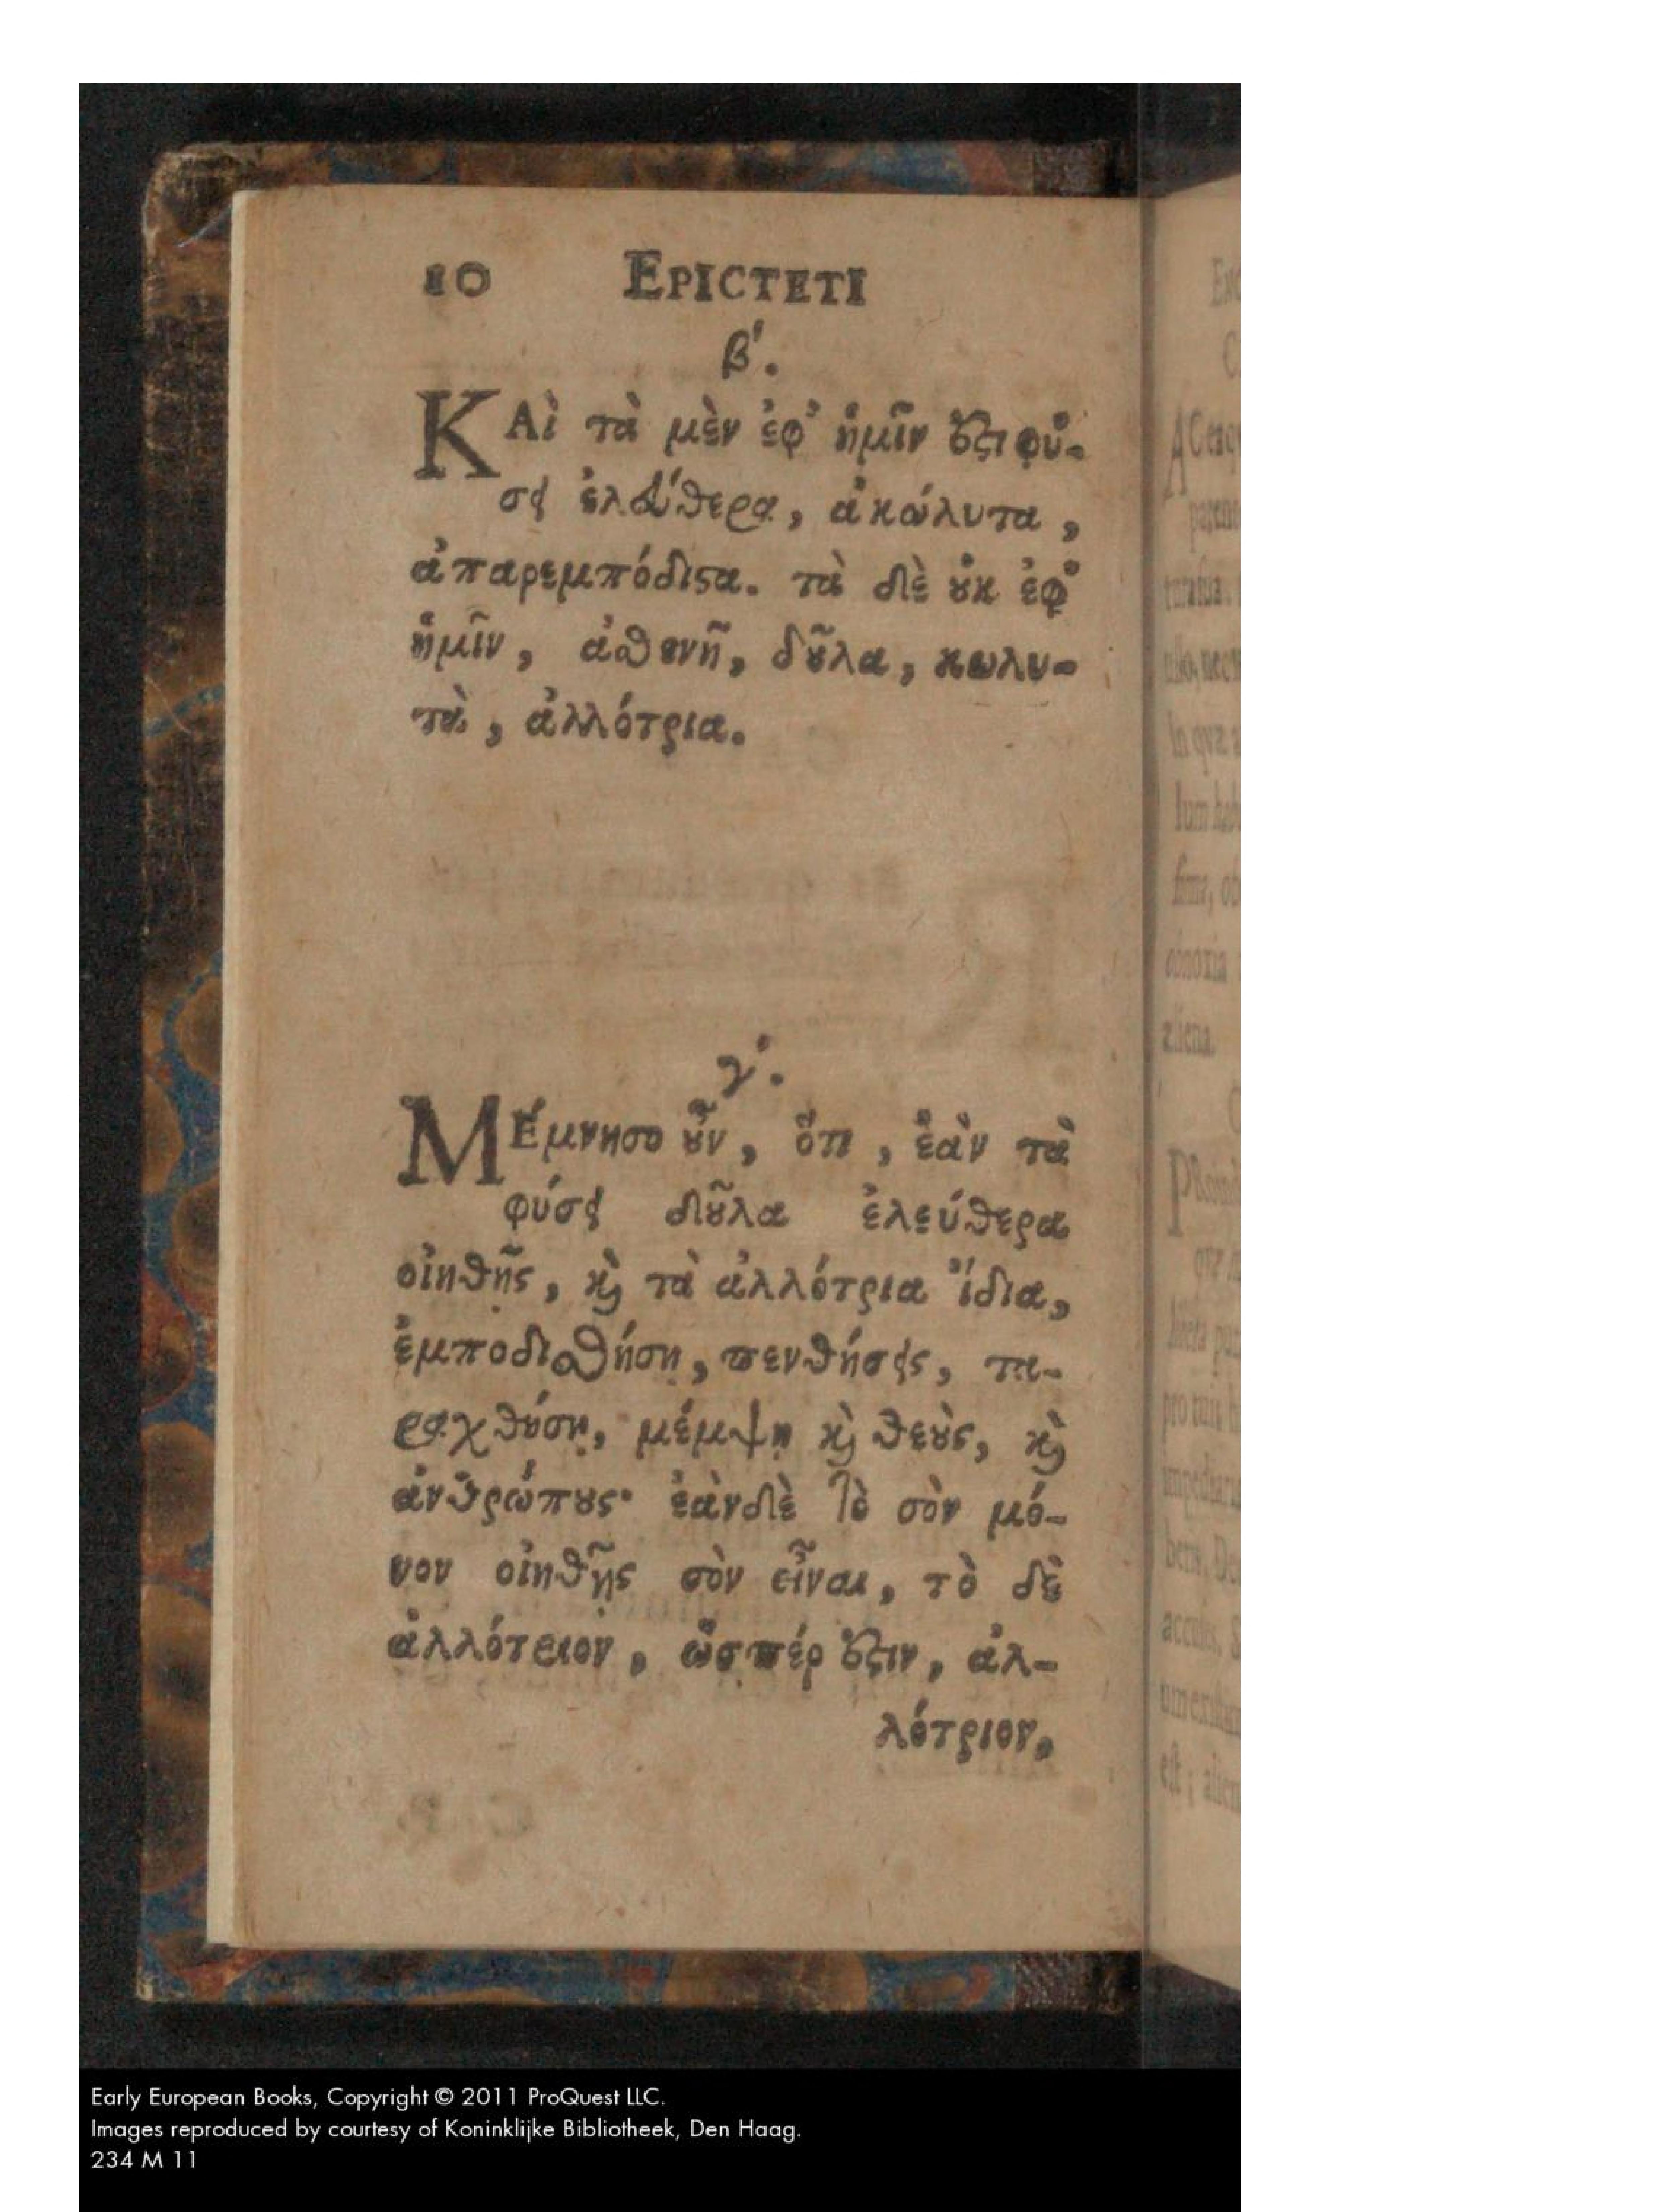 10 EPICTETI
β'.
ΚΑὶ τὰ μὲν ἐφ' ἡμῖν ἔστι φύ-
σει ἐλεύθερα, ἀκώλυτα,
ἀπαρεμπόδιστα. τὰ δὲ οὐκ ἐφ'
ἡμῖν, ἀσθενῆ, δοῦλα, κωλυ-
τὰ, ἀλλότρια.
γ'.
ΜΈμνησο οὖν, ὅτι, ἐὰν τὰ
φύσει δοῦλα ἐλεύθερα
οἰηθῇς, καὶ τὰ ἀλλότρια ἴδια,
ἐμποδισθήσῃ, πενθήσεις, τα-
ραχθήσῃ, μέμψῃ καὶ θεοὺς, καὶ
ἀνθρώπους· ἐὰν δὲ τὸ σὸν μό-
νον οἰηθῇς σὸν εἶναι, τὸ δὲ
ἀλλότριον, ὥσπέρ ἔστιν, ἀλ-
λότριον,
Early European Books, Copyright © 2011 ProQuest LLC.
Images reproduced by courtesy of Koninklijke Bibliotheek, Den Haag.
234 M 11